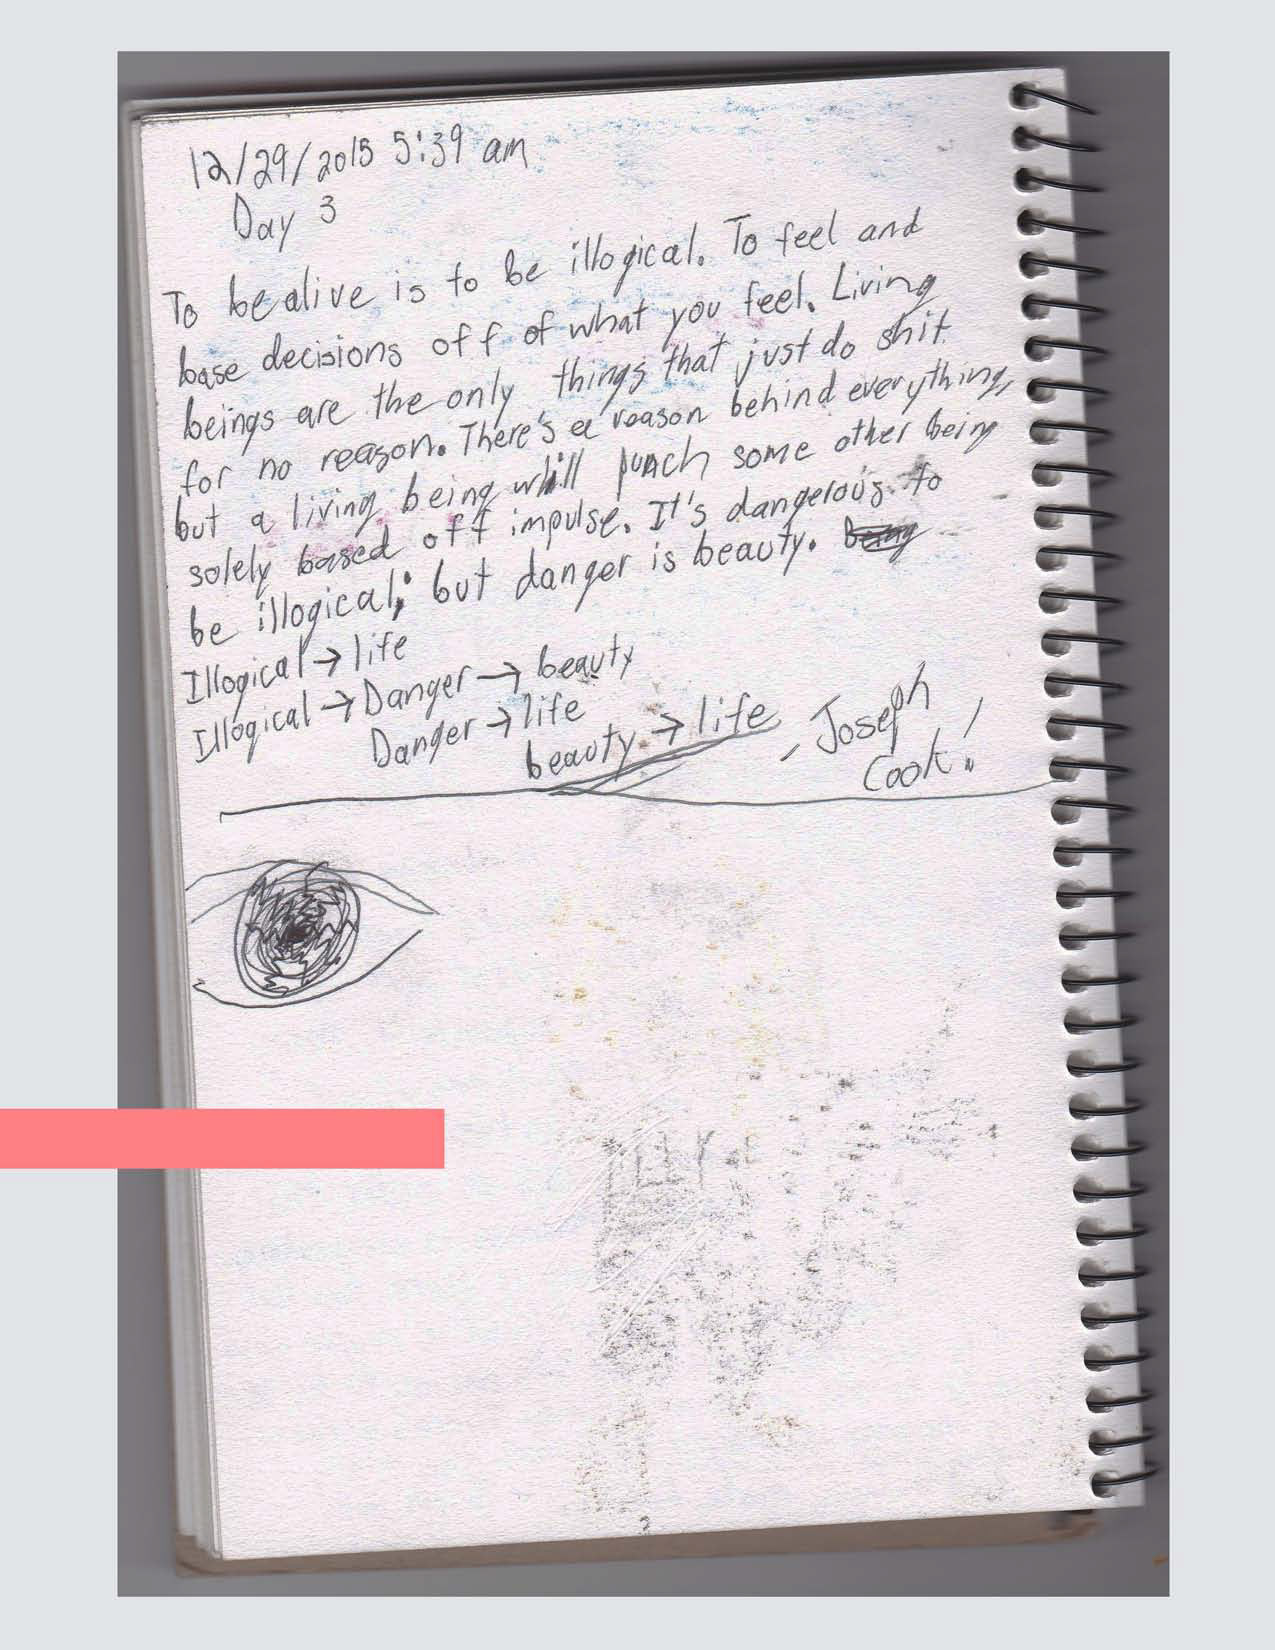 12/29/2015 5:39 am
Day 3
To be alive is to be illogical. To feel and
base decisions off of what you feel. Living
beings are the only things that just do shit
for no reason. There's a reason behind everything,
but a living being will punch some other being
solely based off impulse. It's dangerous to
be illogical; but danger is beauty.
Illogical → life
Illogical → Danger → beauty
Danger → life
beauty → life
- Joseph
Cook!